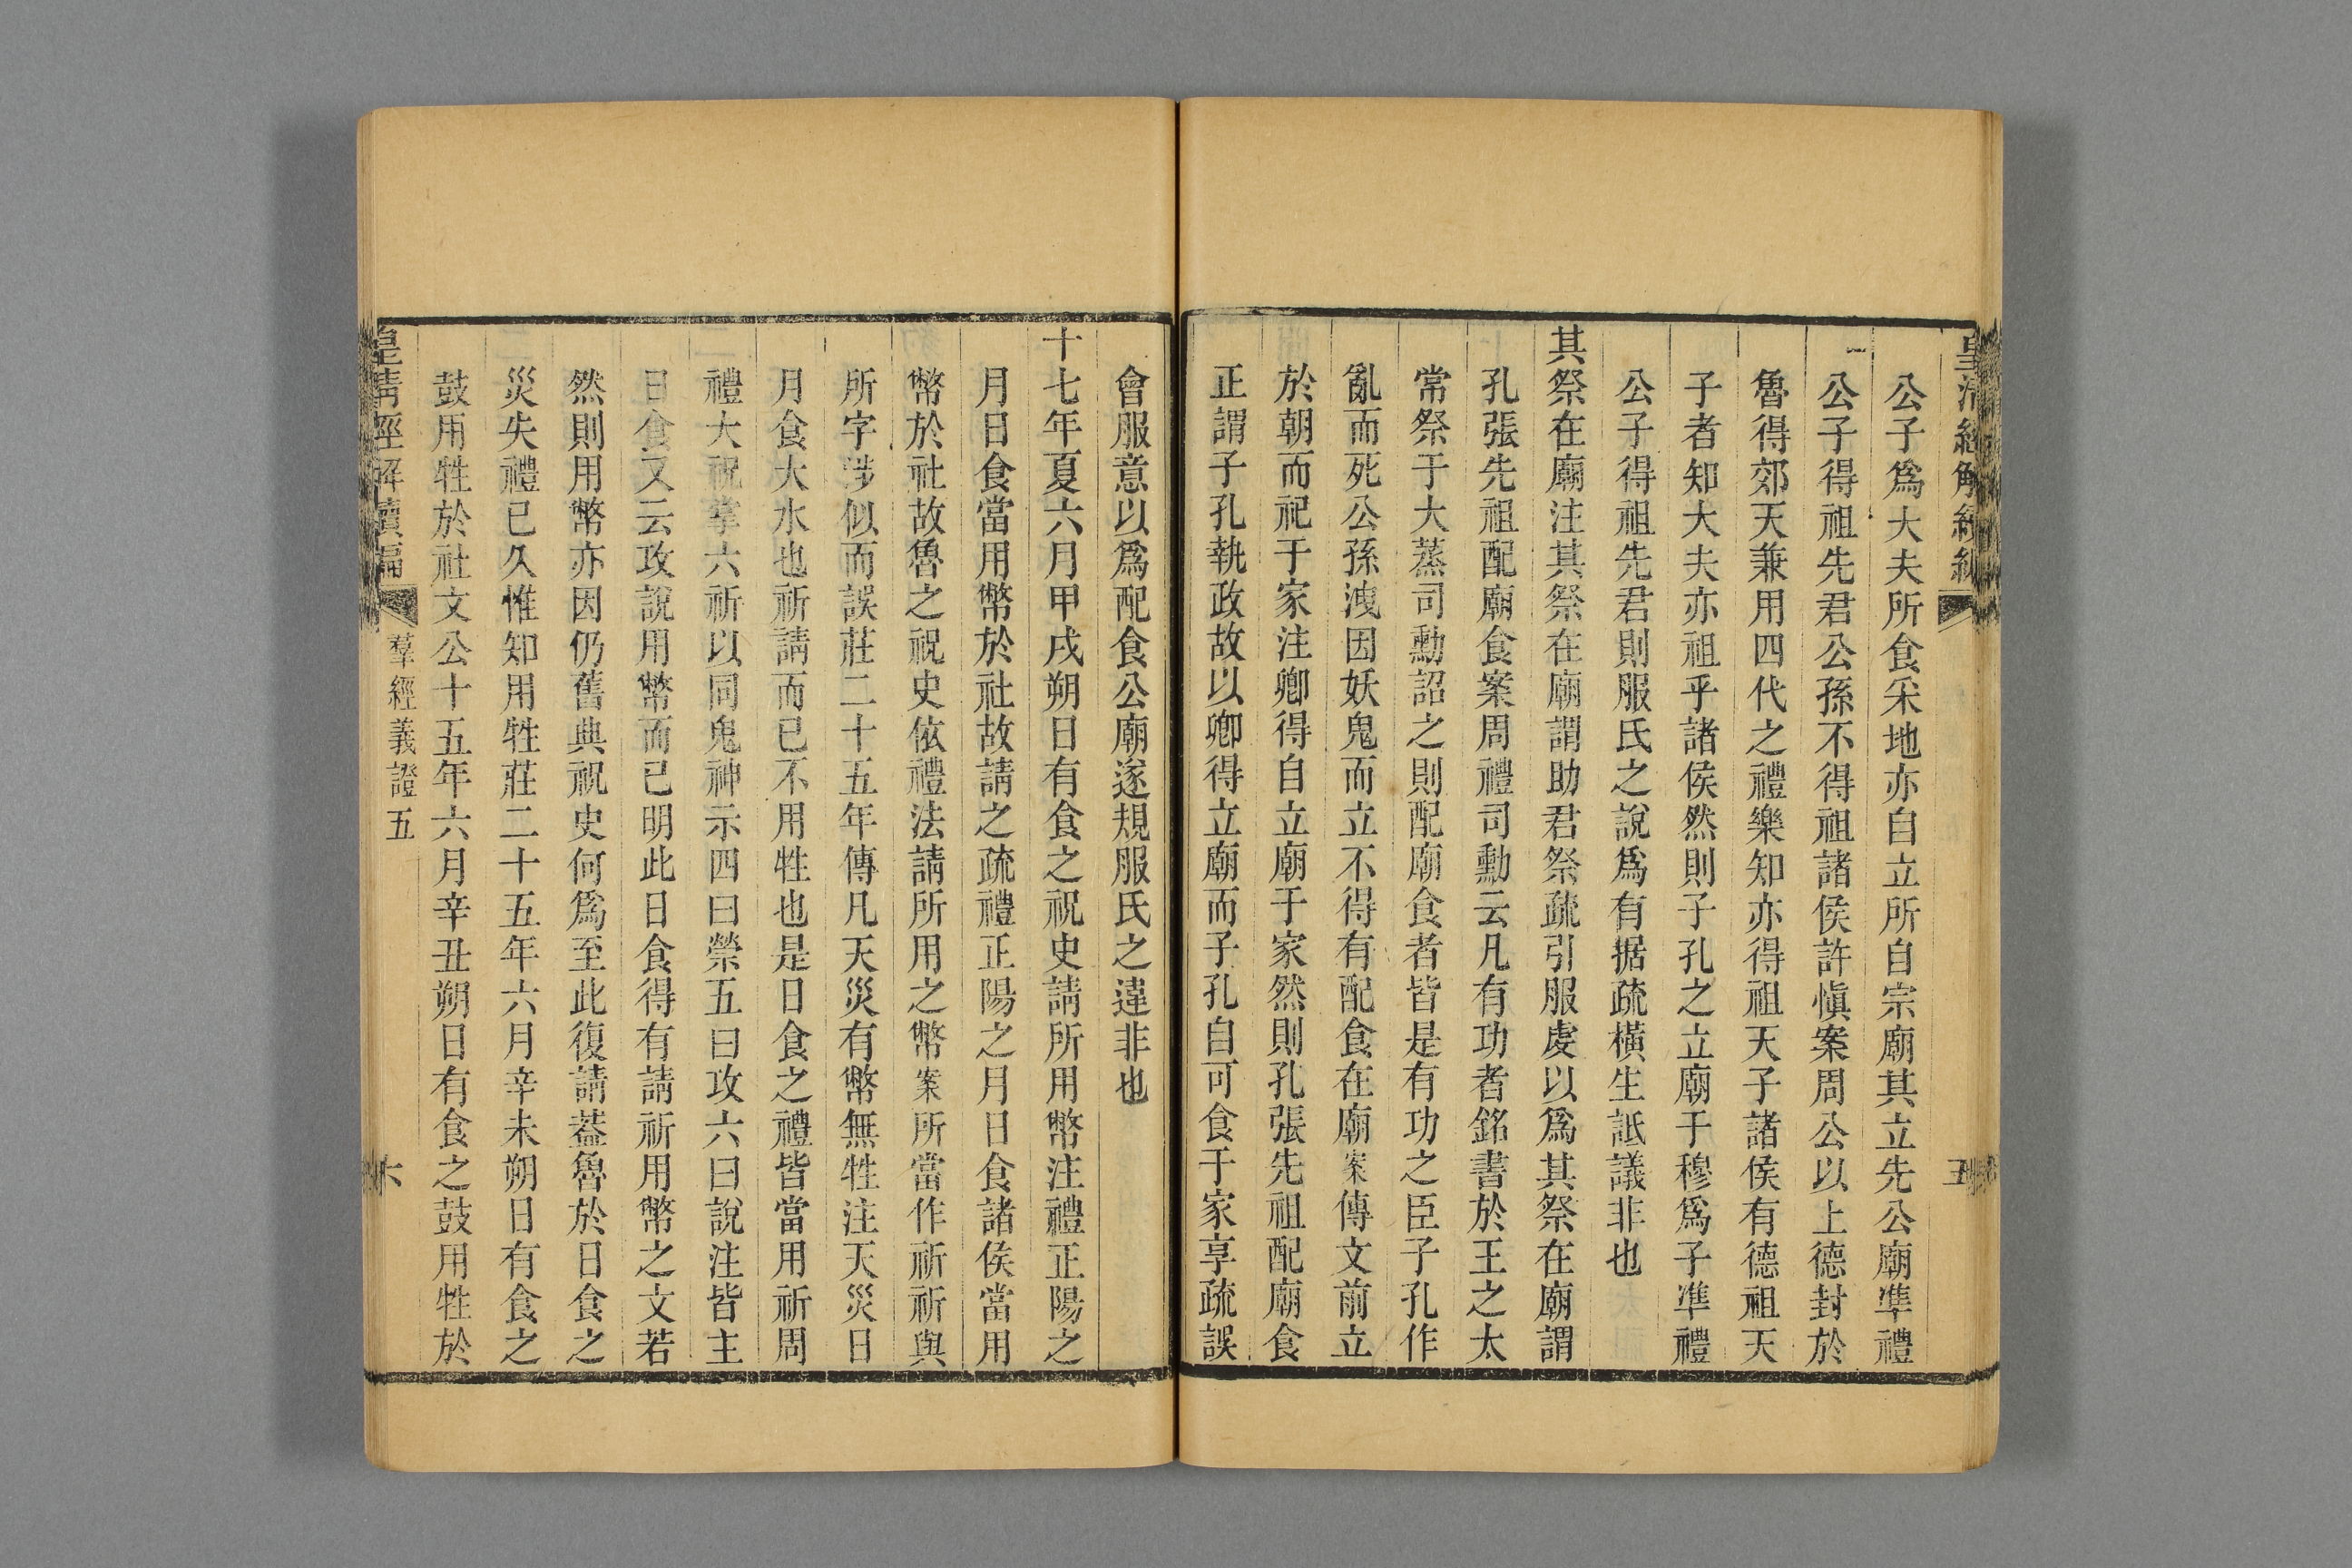 皇清經解續編
五
公子爲大夫所食采地亦自立所自宗廟其立先公廟準禮
公子得祖先君公孫不得祖諸侯許愼案周公以上德封於
魯得郊天兼用四代之禮樂知亦得祖天子諸侯有德祖天
子者知大夫亦祖乎諸侯然則子孔之立廟于穆爲子準禮
公子得祖先君則服氏之說爲有据疏橫生詆議非也
其祭在廟注其祭在廟謂助君祭疏引服虔以爲其祭在廟謂
孔張先祖配廟食案周禮司勳云凡有功者銘書於王之太
常祭于大蒸司勳詔之則配廟食者皆是有功之臣子孔作
亂而死公孫洩因妖鬼而立不得有配食在廟案傳文前立
於朝而祀于家注卿得自立廟于家然則孔張先祖配廟食
正謂子孔執政故以卿得立廟而子孔自可食于家享疏誤
會服意以爲配食公廟遂規服氏之違非也
十七年夏六月甲戌朔日有食之祝史請所用幣注禮正陽之
月日食當用幣於社故請之疏禮正陽之月日食諸侯當用
幣於社故魯之祝史依禮法請所用之幣案所當作祈祈與
所字涉似而誤莊二十五年傳凡天災有幣無牲注天災日
月食大水也祈請而已不用牲也是日食之禮皆當用祈周
禮大祝掌六祈以同鬼神示四曰禜五曰攻六曰說注皆主
日食又云攻說用幣而已明此日食得有請祈用幣之文若
然則用幣亦因仍舊典祝史何爲至此復請葢魯於日食之
災失禮已久惟知用牲莊二十五年六月辛未朔日有食之
鼓用牲於社文公十五年六月辛丑朔日有食之鼓用牲於
皇清經解續編
羣經義證五
六